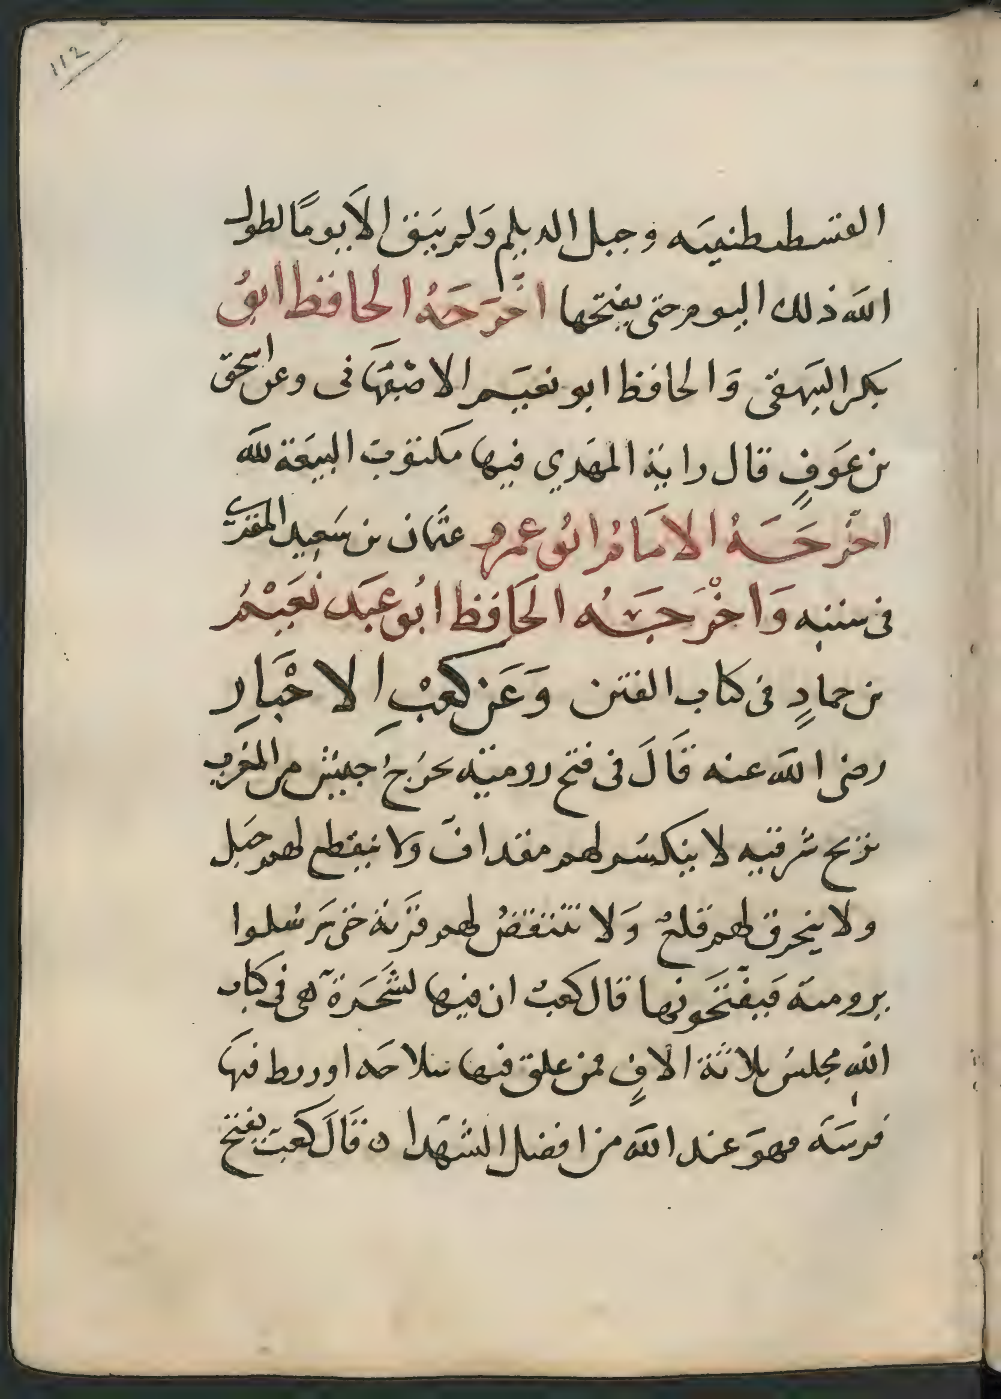 112
القسطنطينيه وجبل الديلم وَلو لم يَبق الاَ يومًا لطول
الله ذلك اليوم حتى يفتحها اخْرَجَهُ الحافظ ابوُ
بكر البَيهقى وَالحافظ ابو نعيَم الاصْبَهَانى وعن اسحق
بن عَوفٍ قال راية المهَدي فيها مكتوب البيَعَة لله
اخْرجَهُ الامَامُ ابُو عمرو عثمان بن سَعِيد المقرى
فى سننِه وَاخْرَجَهُ الحَافظ ابُو عبَد نُعَيْمُ
بن حمادٍ فى كتاب الفتن وَعَن كَعْبِ الاحْبَارِ
رضى الله عنه قَالَ فى فتح روميَّة يَخْرَجُ جيش من المغرب
بريح شرقيه لا ينكسر لهم مقداف ولا ينقطع لهم حَبل
ولا ينخرق لهم قلعٌ وَلا تنتقضُ لهم قرَبَة حَتى يَرسُلوا
بروميَة فَيفْتَحَونها قال كعبٌ ان فيها لشَجَرَة هى فى كتاب
اللهِ مجلس ثلاثَة الافٍ فمن علق فيها سلاحَه او ربط فيهَا
فرسَه فهوَ عند الله من افضل الشهَدا ه قَالَ كَعبٌ يفتح